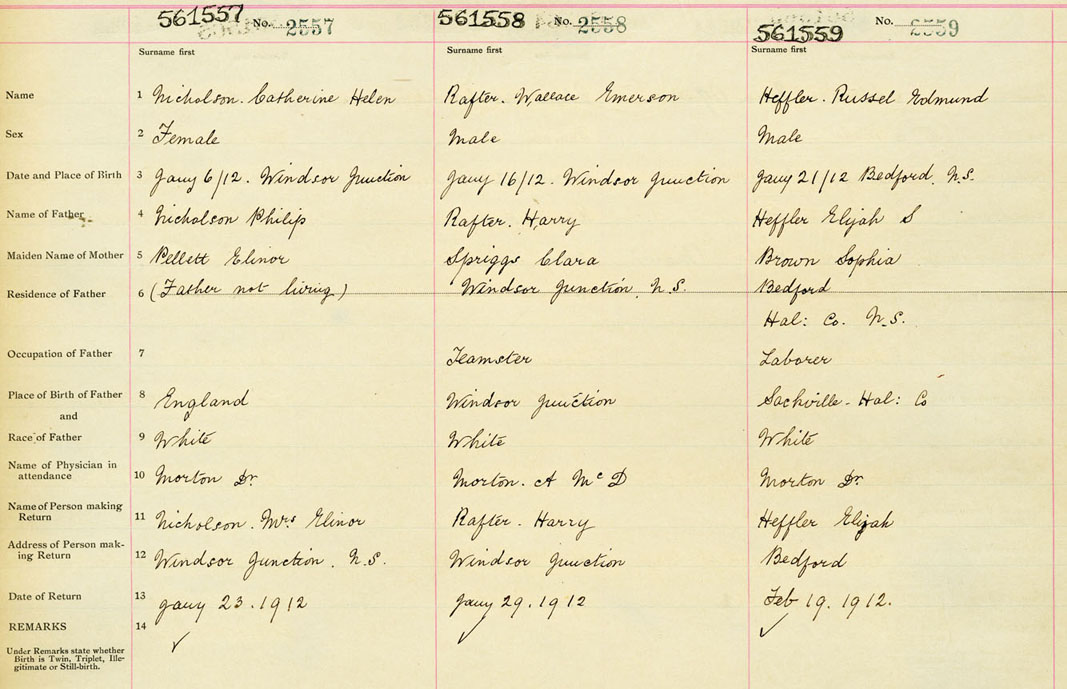 561557 No. 2557 561558 No. 2558 561559 No. 2559
Surname first Surname first Surname first
Name 1 Nicholson. Catherine Helen Rafter. Wallace Emerson Heffler. Russel Edmund
Sex 2 Female Male Male
Date and Place of Birth 3 Jany 6/12. Windsor Junction Jany 16/12. Windsor Junction Jany 21/12 Bedford. N.S.
Name of Father 4 Nicholson Philip Rafter. Harry Heffler Elijah S
Maiden Name of Mother 5 Pellett Elinor Spriggs Clara Brown Sophia
Residence of Father 6 (Father not living) Windsor Junction. N.S. Bedford
Hal: Co. N.S.
Occupation of Father 7 Teamster Laborer
Place of Birth of Father 8 England Windsor Junction Sackville. Hal: Co
and
Race of Father 9 White White White
Name of Physician in
attendance 10 Morton Dr. Morton. A McD Morton Dr.
Name of Person making
Return 11 Nicholson. Mrs Elinor Rafter. Harry Heffler Elijah
Address of Person mak-
ing Return 12 Windsor Junction. N.S. Windsor Junction Bedford
Date of Return 13 Jany 23. 1912 Jany 29. 1912 Feb 19. 1912.
REMARKS 14 ✓ ✓ ✓
Under Remarks state whether
Birth is Twin, Triplet, Ille-
gitimate or Still-birth.